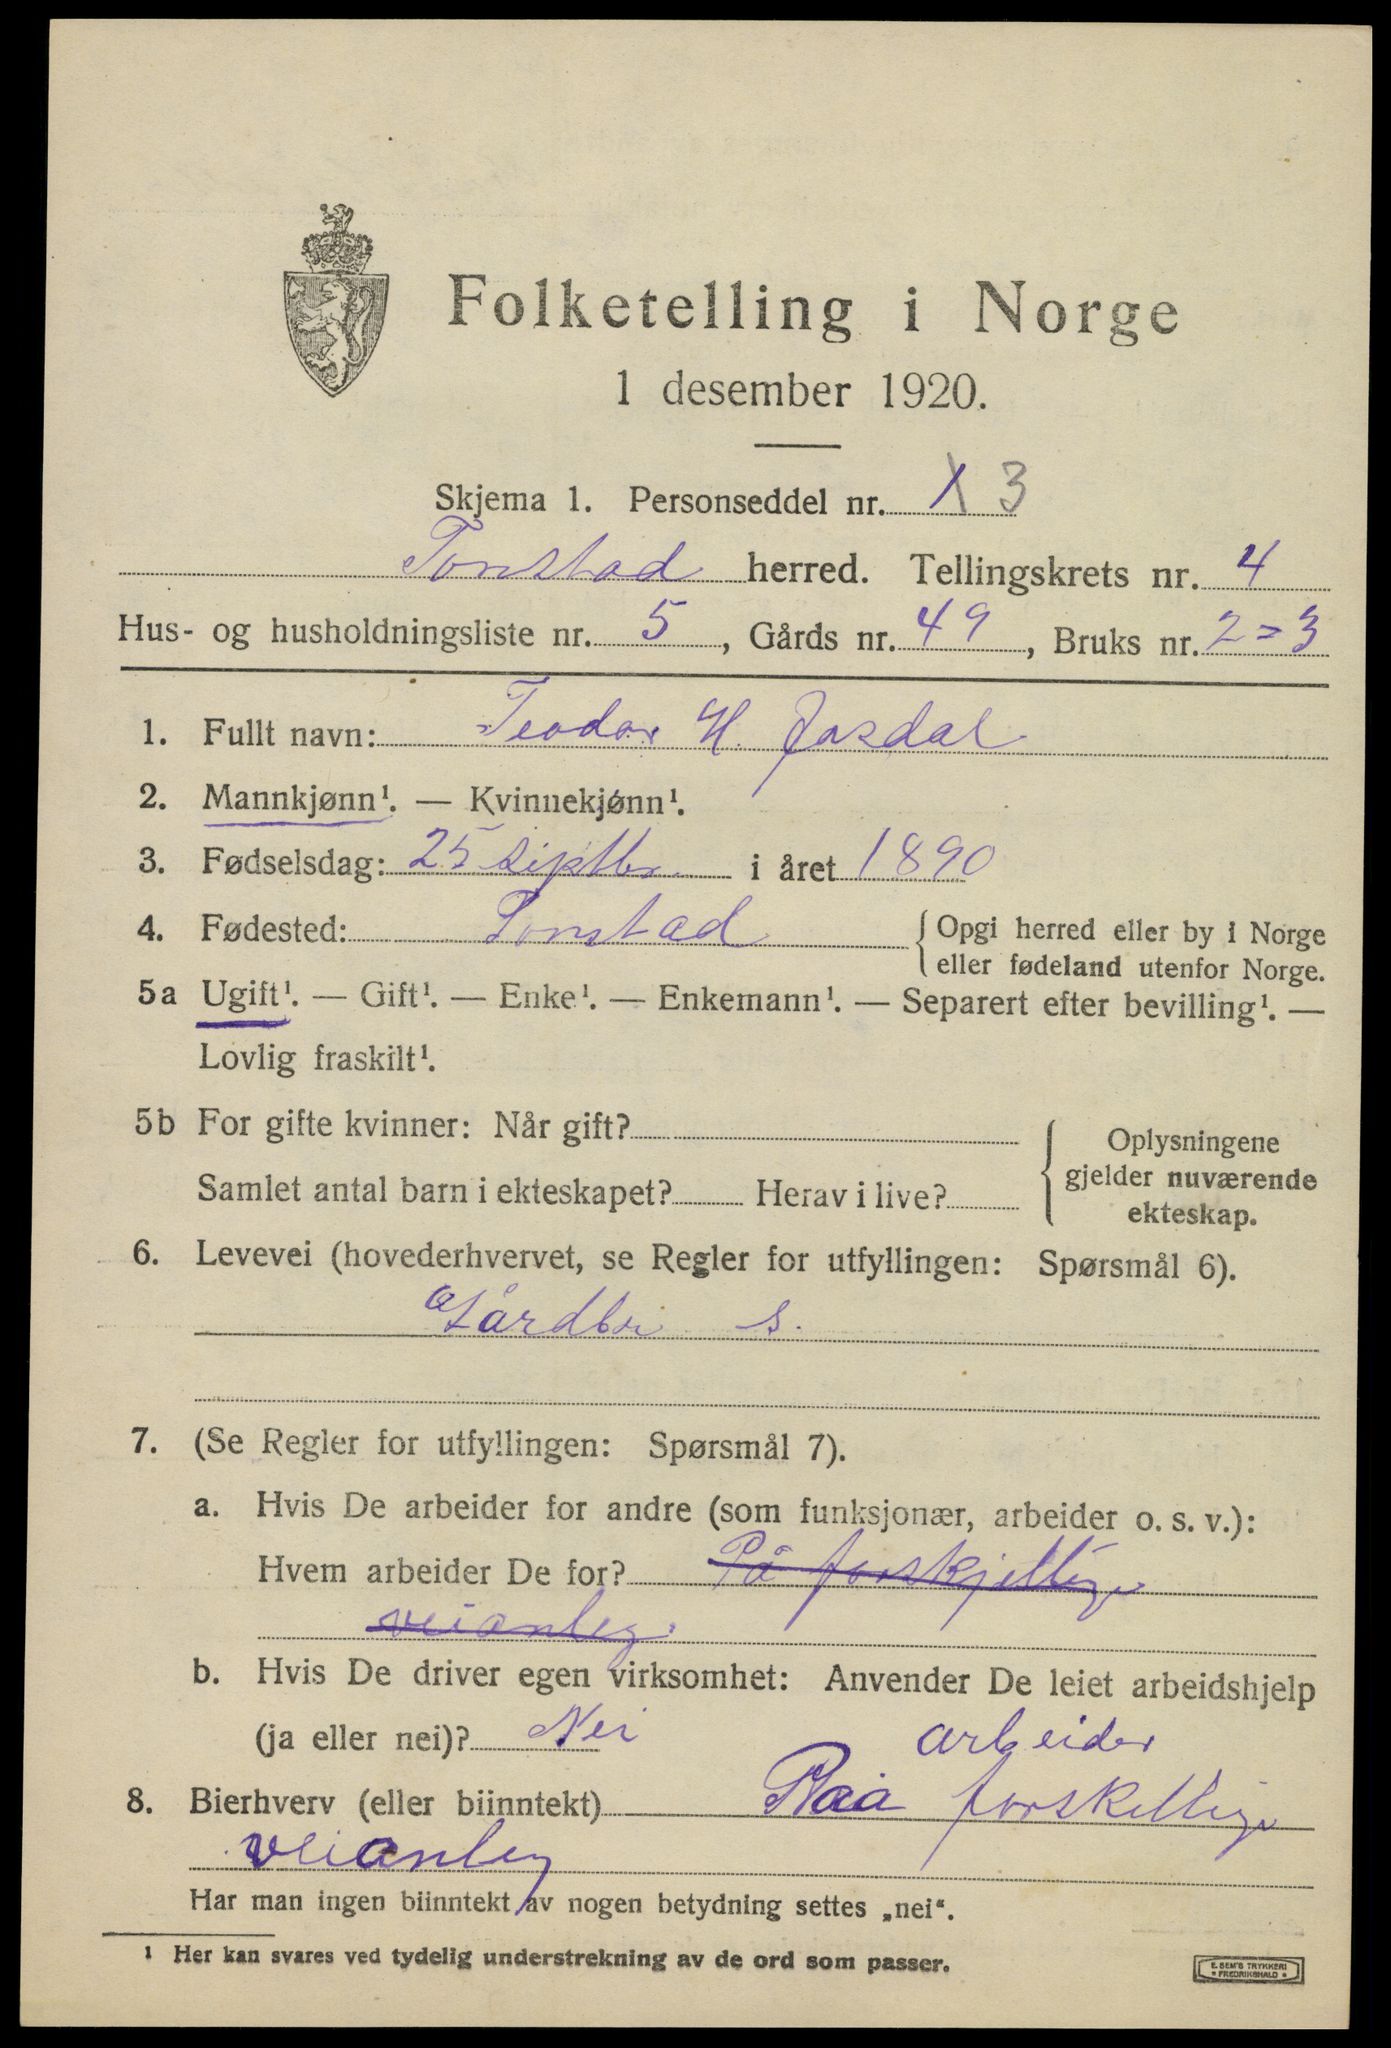 Folketelling i Norge
1 desember 1920.
Skjema 1. Personseddel nr. 1 3
Tonstad herred. Tellingskrets nr. 4
Hus- og husholdningsliste nr. 5, Gårds nr. 49, Bruks nr. 2 = 3
1. Fullt navn: Teodor H. Josdal
2. Mannkjønn¹. — Kvinnekjønn¹.
3. Fødselsdag: 25 septbr i året 1890
4. Fødested: Tonstad { Opgi herred eller by i Norge
eller fødeland utenfor Norge.
5a Ugift¹. — Gift¹. — Enke¹. — Enkemann¹. — Separert efter bevilling¹. —
Lovlig fraskilt¹.
5b For gifte kvinner: Når gift?
Samlet antal barn i ekteskapet? Herav i live?
Oplysningene
gjelder nuværende
ekteskap.
6. Levevei (hovederhvervet, se Regler for utfyllingen: Spørsmål 6).
Gårdbr s.
7. (Se Regler for utfyllingen: Spørsmål 7).
a. Hvis De arbeider for andre (som funksjonær, arbeider o. s. v.):
Hvem arbeider De for? På forskjellige
veianleg
b. Hvis De driver egen virksomhet: Anvender De leiet arbeidshjelp
(ja eller nei)? Nei arbeider
8. Bierhverv (eller biinntekt) Paa forskellige
veianleg
Har man ingen biinntekt av nogen betydning settes „nei“.
1 Her kan svares ved tydelig understrekning av de ord som passer.
E. SEM'S TRYKKERI
• FREDRIKSHALD •